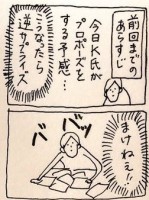 前回までの
あらすじ
今日K氏が
プロポーズを
する予感…
こうなったら
逆サプライズ
まけねぇ!
バババ